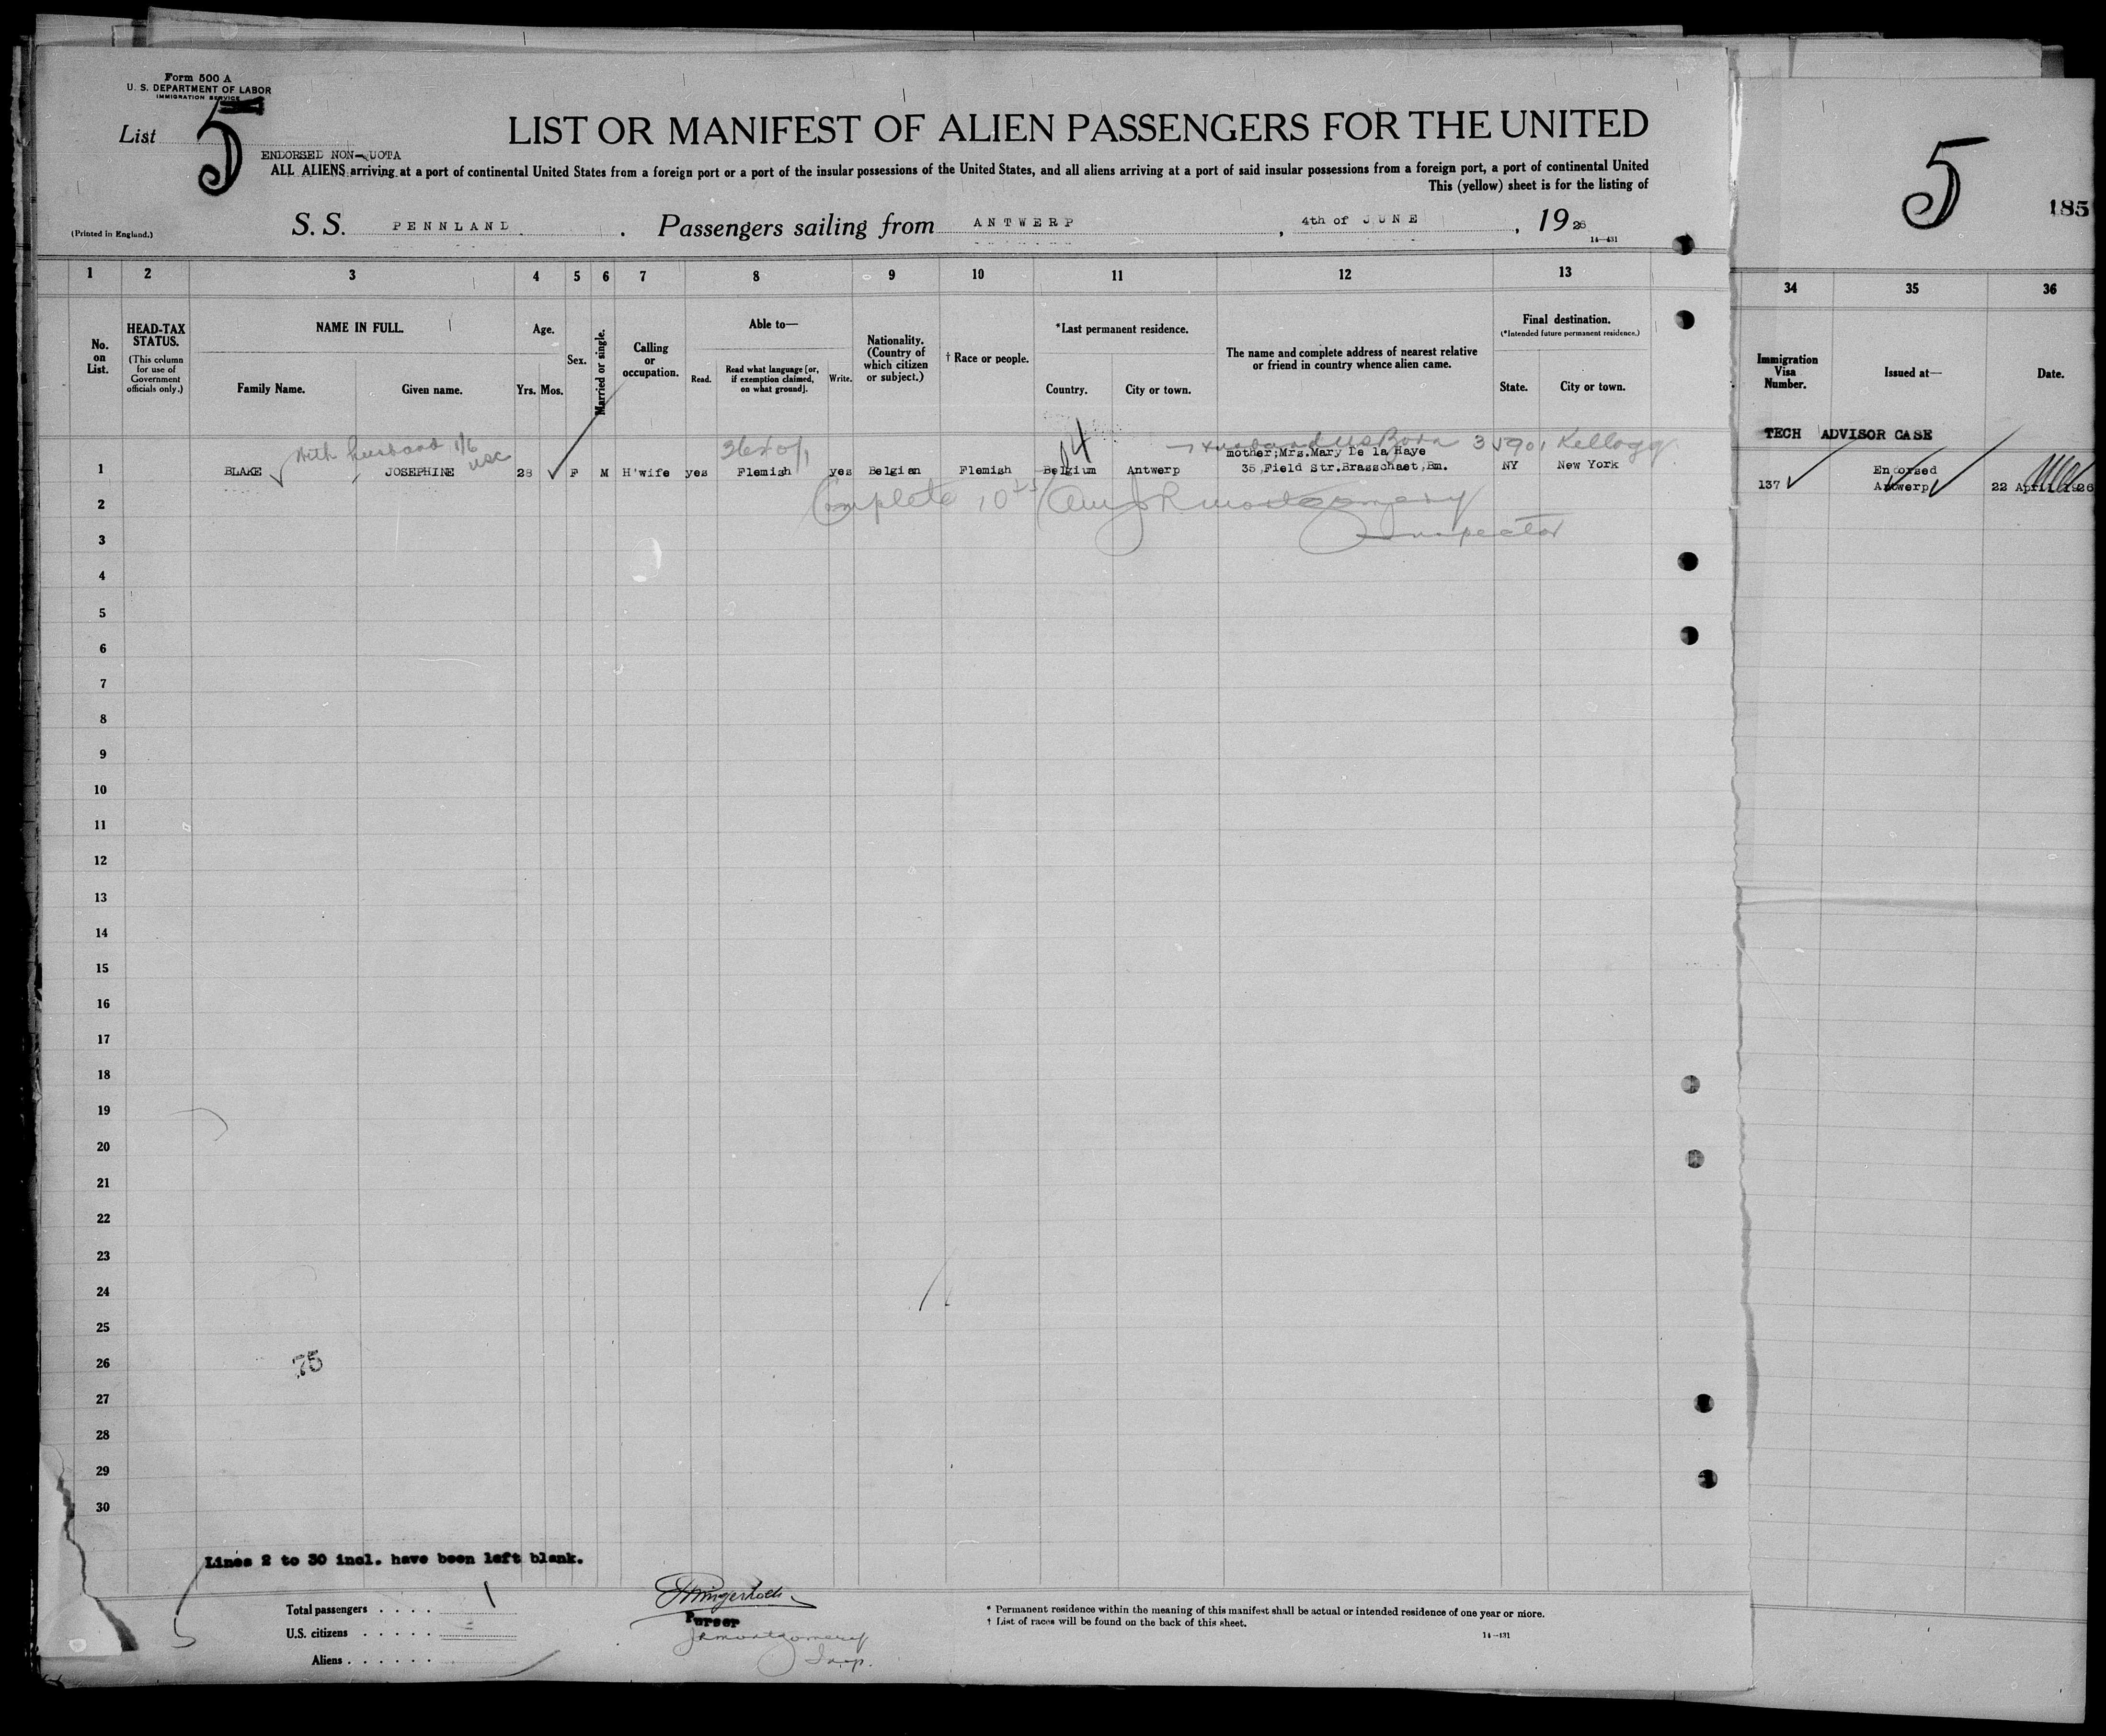 Form 500 A
U. S. DEPARTMENT OF LABOR
IMMIGRATION SERVICE
List 5
ENDORSED NON-QUOTA
LIST OR MANIFEST OF ALIEN PASSENGERS FOR THE UNITED
ALL ALIENS arriving at a port of continental United States from a foreign port or a port of the insular possessions of the United States, and all aliens arriving at a port of said insular possessions from a foreign port, a port of continental United
This (yellow) sheet is for the listing of
(Printed in England.)
S. S. PENNLAND . Passengers sailing from ANTWERP , 4th of JUNE , 1926
14—431
5
185
1 2 3 4 5 6 7 8 9 10 11 12 13
34 35 36
No. on List.
HEAD-TAX STATUS.
(This column for use of Government officials only.)
NAME IN FULL.
Family Name. Given name.
Age.
Yrs. Mos.
Sex.
Married or single.
Calling or occupation.
Able to—
Read. Read what language [or, if exemption claimed, on what ground]. Write.
Nationality. (Country of which citizen or subject.)
† Race or people.
*Last permanent residence.
Country. City or town.
The name and complete address of nearest relative or friend in country whence alien came.
Final destination.
(*Intended future permanent residence.)
State. City or town.
Immigration Visa Number.
Issued at—
Date.
TECH ADVISOR CASE
With husband 1/6 USC
husband US Born 3 Kellogg
mother;Mrs.Mary De la Haye
1 BLAKE JOSEPHINE 28 F M H'wife yes Flemish yes Belgian Flemish Belgium Antwerp 35 Field Str.Brasschaet,Bm. NY New York
137 Endorsed Antwerp 22 April 1926
Complete 10 25 Am J R Montgomery
Inspector
2
3
4
5
6
7
8
9
10
11
12
13
14
15
16
17
18
19
20
21
22
23
24
25
26
27
28
29
30
75
Lines 2 to 30 incl. have been left blank.
Total passengers . . . . 1
U.S. citizens . . . . . =
Aliens . . . . . .
Purser
J R Montgomery
Insp.
* Permanent residence within the meaning of this manifest shall be actual or intended residence of one year or more.
† List of races will be found on the back of this sheet.
14—431